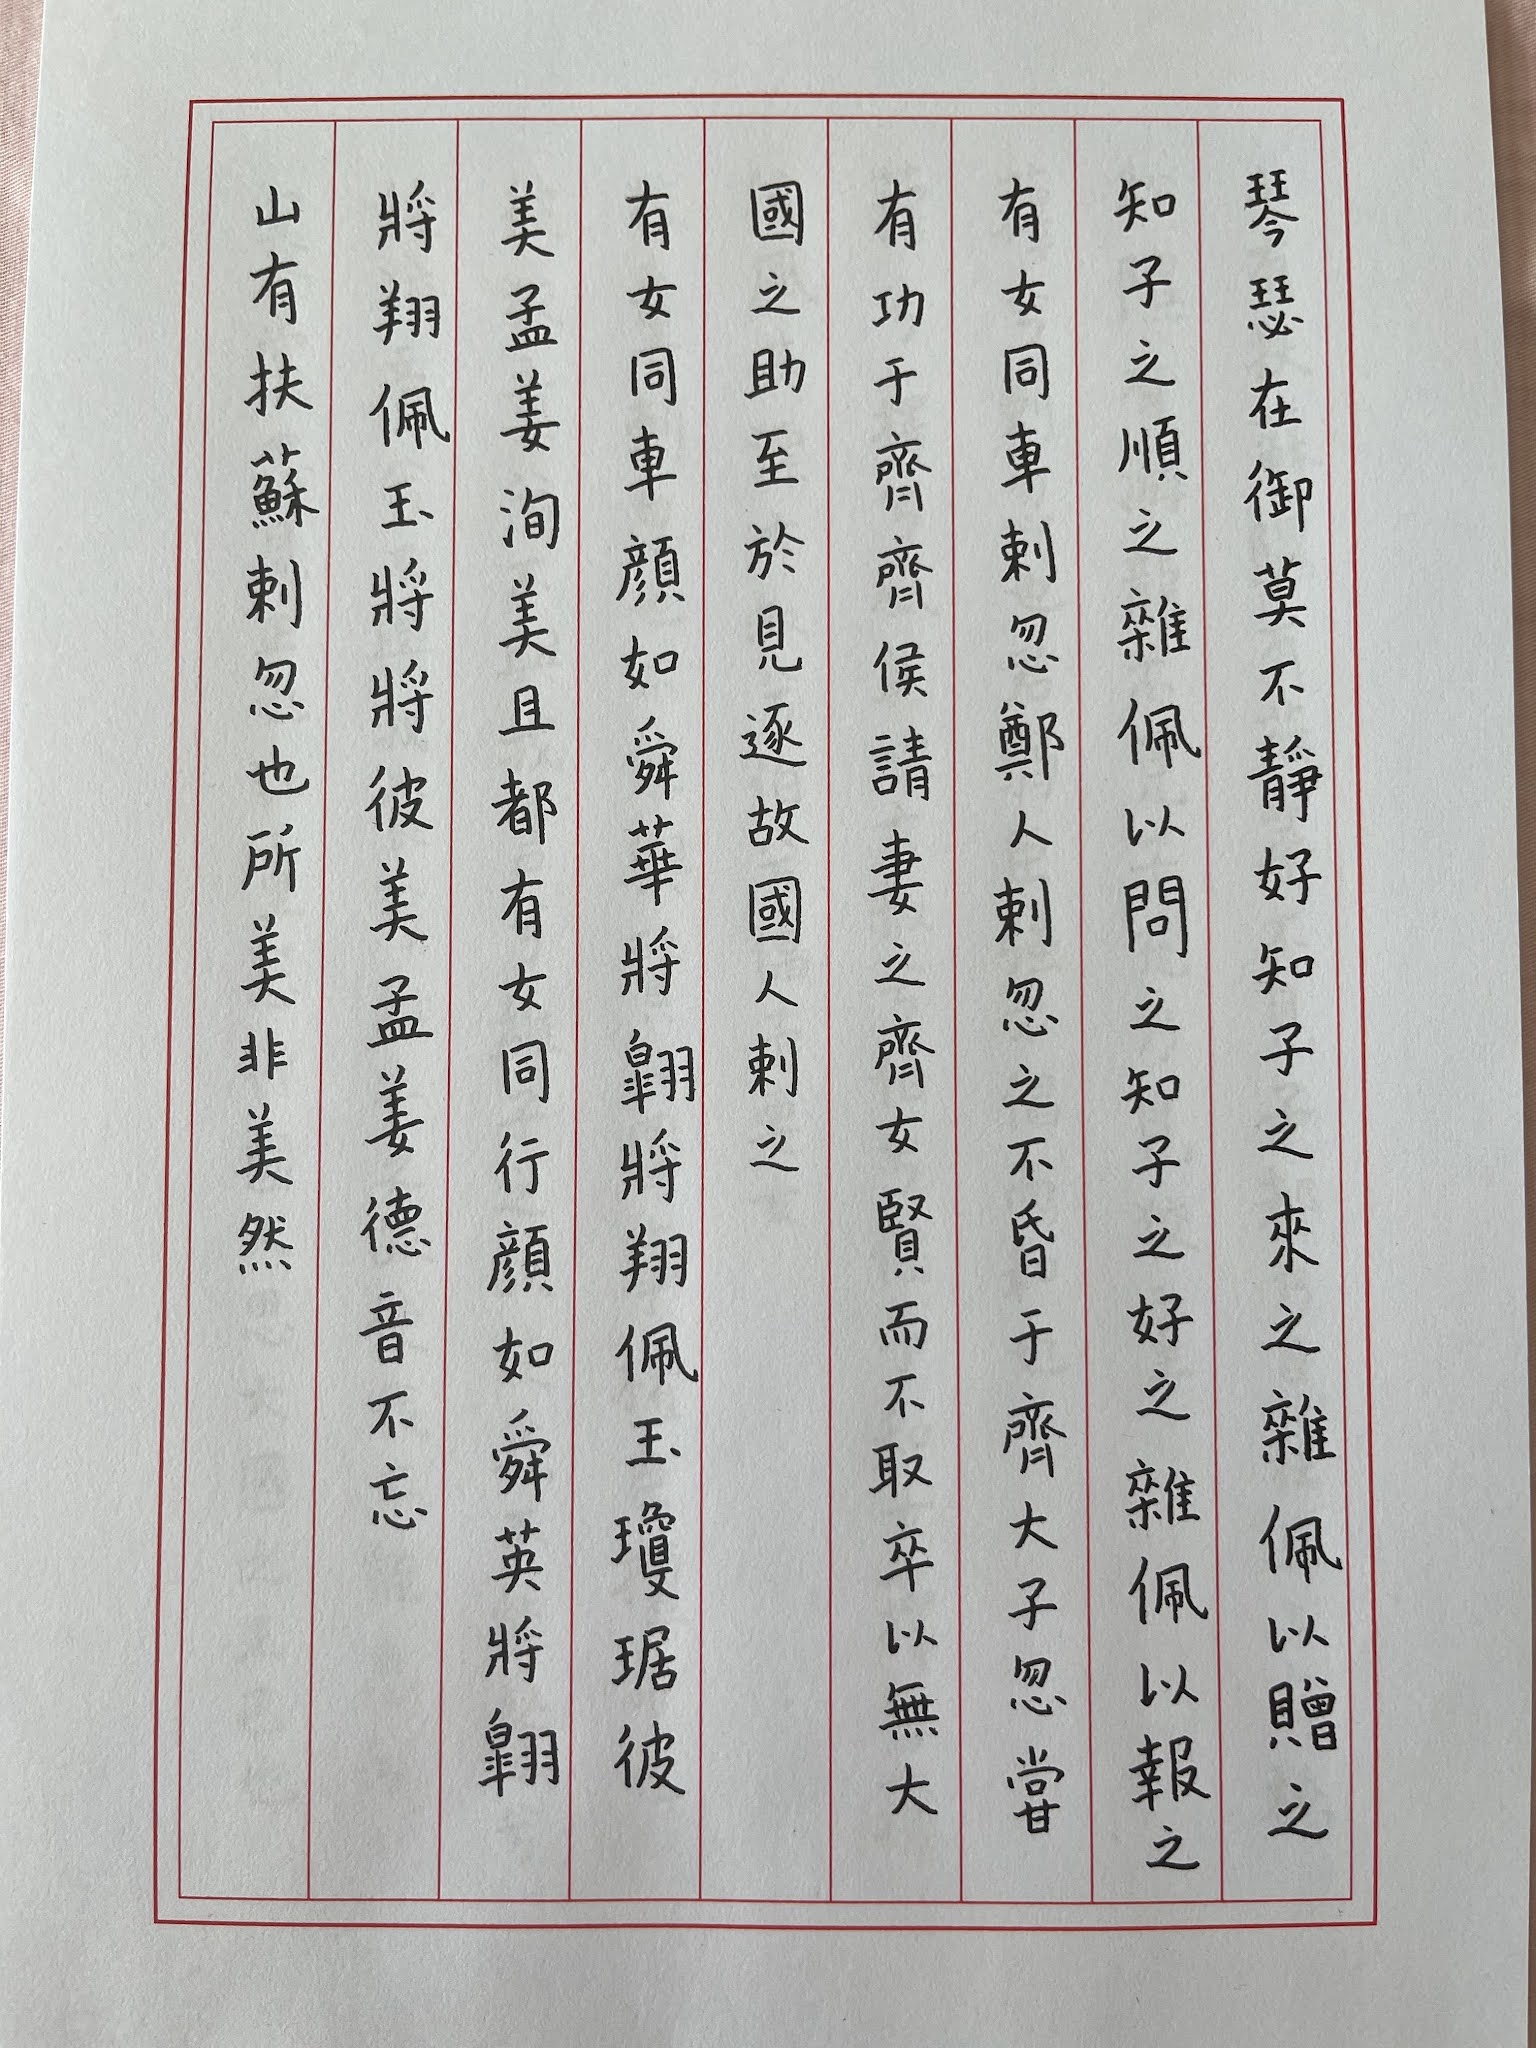 琴瑟在御莫不靜好知子之來之雜佩以贈之
知子之順之雜佩以問之知子之好之雜佩以報之
有女同車刺忽鄭人刺忽之不昏于齊大子忽嘗
有功于齊齊侯請妻之齊女賢而不取卒以無大
國之助至於見逐故國人刺之
有女同車顏如舜華將翱將翔佩玉瓊琚彼
美孟姜洵美且都有女同行顏如舜英將翱
將翔佩玉將將彼美孟姜德音不忘
山有扶蘇刺忽也所美非美然